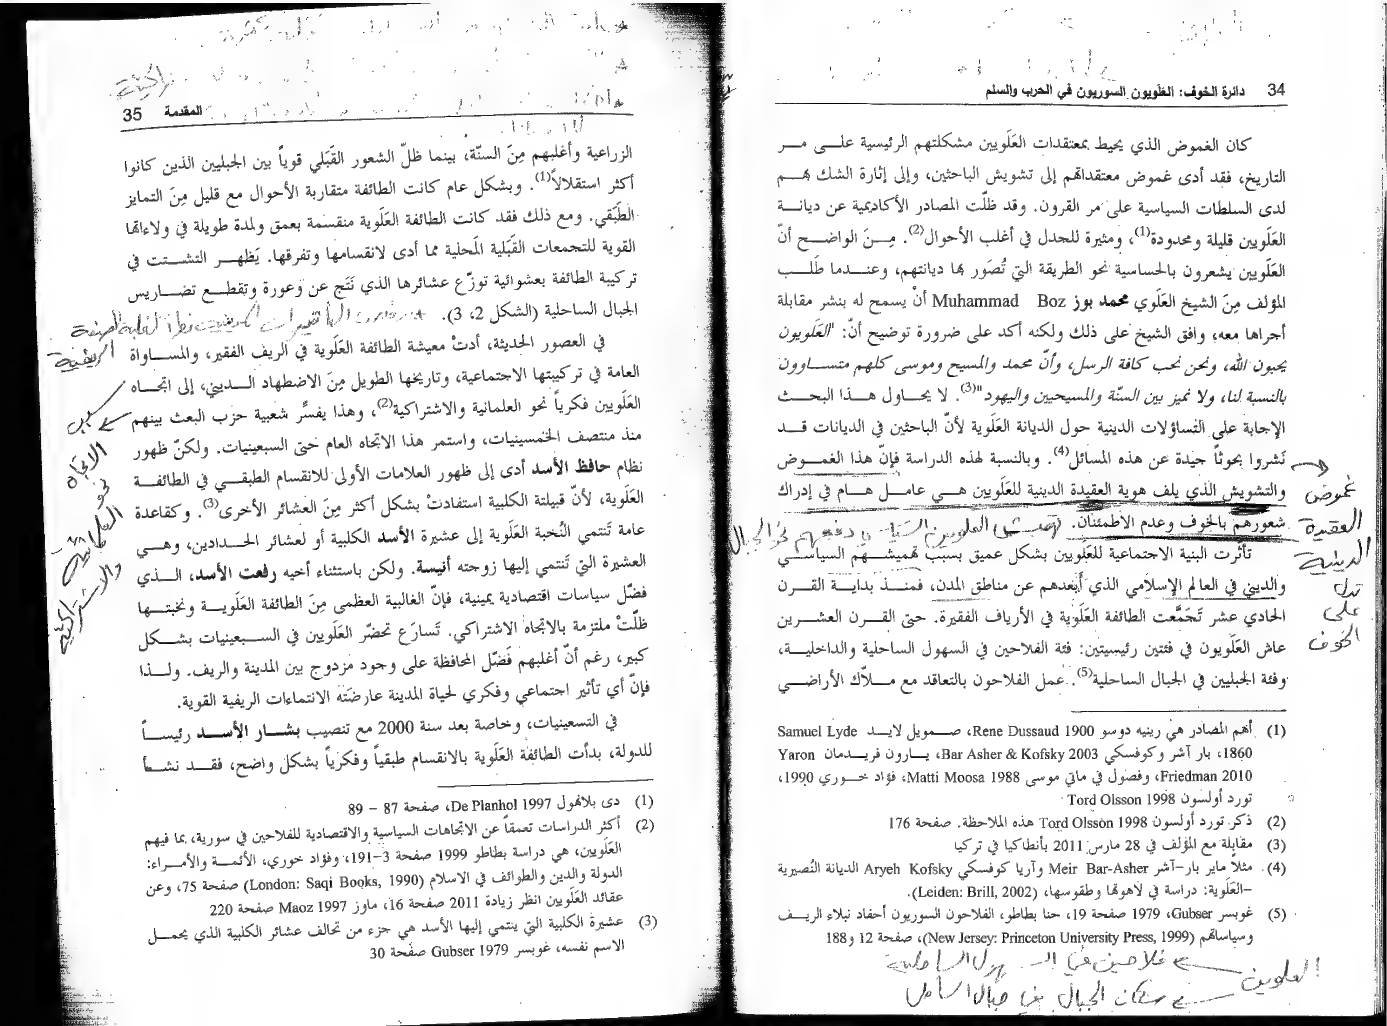 34 دائرة الخوف: العلويون السوريون في الحرب والسلم
كان الغموض الذي يحيط بمعتقدات العَلَويين مشكلتهم الرئيسية على مر
التاريخ، فقد أدى غموض معتقداتهم إلى تشويش الباحثين، وإلى إثارة الشك بهم
لدى السلطات السياسية على مر القرون. وقد ظلّت المصادر الأكاديمية عن ديانة
العَلَويين قليلة ومحدودة(1)، ومثيرة للجدل في أغلب الأحوال(2). مِنَ الواضح أنّ
العَلَويين يشعرون بالحساسية نحو الطريقة التي تُصَور بها ديانتهم، وعندما طَلب
المؤلف مِنَ الشيخ العَلَوي محمد بوز Muhammad Boz أنْ يسمح له بنشر مقابلة
أجراها معه، وافق الشيخ على ذلك ولكنه أكد على ضرورة توضيح أنّ: "العَلَويون
يحبون الله، ونحن نحب كافة الرسل، وأنّ محمد والمسيح وموسى كلهم متساوون
بالنسبة لنا، ولا نميز بين السنّة والمسيحيين واليهود"(3). لا يحاول هذا البحث
الإجابة على التساؤلات الدينية حول الديانة العَلَوية لأنّ الباحثين في الديانات قد
نَشروا بحوثاً جيدة عن هذه المسائل(4). وبالنسبة لهذه الدراسة فإنّ هذا الغموض
والتشويش الذي يلف هوية العقيدة الدينية للعَلَويين هي عامل هام في إدراك
شعورهم بالخوف وعدم الاطمئنان.
تأثرت البنية الاجتماعية للعَلَويين بشكل عميق بسبب تهميشهم السياسي
والديني في العالم الإسلامي الذي أبعدهم عن مناطق المدن، فمنذ بداية القرن
الحادي عشر تَجَمَّعت الطائفة العَلَوية في الأرياف الفقيرة. حتى القرن العشرين
عاش العَلَويون في فئتين رئيسيتين: فئة الفلاحين في السهول الساحلية والداخلية،
وفئة الجبليين في الجبال الساحلية(5). عمل الفلاحون بالتعاقد مع ملاّك الأراضي
(1) أهم المصادر هي رينيه دوسو Rene Dussaud 1900، صمويل لايد Samuel Lyde
1860، بار آشر وكوفسكي Bar Asher & Kofsky 2003، يارون فريدمان Yaron
Friedman 2010، وفصول في ماتي موسى Matti Moosa 1988، فؤاد خوري 1990،
تورد أولسون Tord Olsson 1998
(2) ذكر تورد أولسون Tord Olsson 1998 هذه الملاحظة. صفحة 176
(3) مقابلة مع المؤلف في 28 مارس 2011 بأنطاكيا في تركيا
(4) مثلاً ماير بار-آشر Meir Bar-Asher وآريا كوفسكي Aryeh Kofsky الديانة النُصيرية
-العَلَوية: دراسة في لاهوتها وطقوسها، (Leiden: Brill, 2002).
(5) غوبسر Gubser، 1979 صفحة 19، حنا بطاطو، الفلاحون السوريون أحفاد نبلاء الريف
وسياساتهم (New Jersey: Princeton University Press, 1999)، صفحة 12 و188
غموض
العقيدة
الدينية
تدل
على
الخوف
العلويين
فلاحين في السهول الساحلية
سكان الجبال في جبال الساحل
المقدمة 35
الزراعية وأغلبهم مِنَ السنّة، بينما ظلّ الشعور القَبَلي قوياً بين الجبليين الذين كانوا
أكثر استقلالاً(1). وبشكل عام كانت الطائفة متقاربة الأحوال مع قليل مِنَ التمايز
الطَبَقي. ومع ذلك فقد كانت الطائفة العَلَوية منقسمة بعمق ولمدة طويلة في ولاءاتها
القوية للتجمعات القَبَلية المَحلية مما أدى لانقسامها وتفرقها. يَظهر التشتت في
تركيبة الطائفة بعشوائية توزّع عشائرها الذي نَتَج عن وعورة وتقطع تضاريس
الجبال الساحلية (الشكل 2، 3).
في العصور الحديثة، أدتْ معيشة الطائفة العَلَوية في الريف الفقير، والمساواة
العامة في تركيبتها الاجتماعية، وتاريخها الطويل مِنَ الاضطهاد الديني، إلى اتجاه
العَلَويين فكرياً نحو العلمانية والاشتراكية(2)، وهذا يفسّر شعبية حزب البعث بينهم
منذ منتصف الخمسينيات، واستمر هذا الاتجاه العام حتى السبعينيات. ولكنّ ظهور
نظام حافظ الأسد أدى إلى ظهور العلامات الأولى للانقسام الطبقي في الطائفة
العَلَوية، لأنّ قبيلته الكلبية استفادتْ بشكل أكثر مِنَ العشائر الأخرى(3). وكقاعدة
عامة تَنتمي النُخبة العَلَوية إلى عشيرة الأسد الكلبية أو لعشائر الحدادين، وهي
العشيرة التي تَنتمي إليها زوجته أنيسة. ولكن باستثناء أخيه رفعت الأسد، الذي
فضّل سياسات اقتصادية يمينية، فإن الغالبية العظمى مِنَ الطائفة العَلَوية ونخبتها
ظلّتْ ملتزمة بالاتجاه الاشتراكي. تَسارَع تحضّر العَلَويين في السبعينيات بشكل
كبير، رغم أنّ أغلبهم فَضّل المحافظة على وجود مزدوج بين المدينة والريف. ولذا
فإنّ أي تأثير اجتماعي وفكري لحياة المدينة عارضَته الانتماءات الريفية القوية.
في التسعينيات، وخاصة بعد سنة 2000 مع تنصيب بشار الأسد رئيساً
للدولة، بدأت الطائفة العَلَوية بالانقسام طبقياً وفكرياً بشكل واضح، فقد نشأ
(1) دي بلانهول De Planhol 1997، صفحة 87 - 89
(2) أكثر الدراسات تعمقاً عن الاتجاهات السياسية والاقتصادية للفلاحين في سورية، بما فيهم
العَلَويين، هي دراسة بطاطو 1999 صفحة 3-191، وفؤاد خوري، الأئمة والأمراء:
الدولة والدين والطوائف في الاسلام (London: Saqi Books, 1990) صفحة 75، وعن
عقائد العَلَويين انظر زيادة 2011 صفحة 16، ماوز Maoz 1997 صفحة 220
(3) عشيرة الكلبية التي ينتمي إليها الأسد هي جزء من تحالف عشائر الكلبية الذي يحمل
الاسم نفسه، غوبسر Gubser 1979 صفحة 30
سبب
الاتجاه
نحو
العلمانية
والاشتراكية